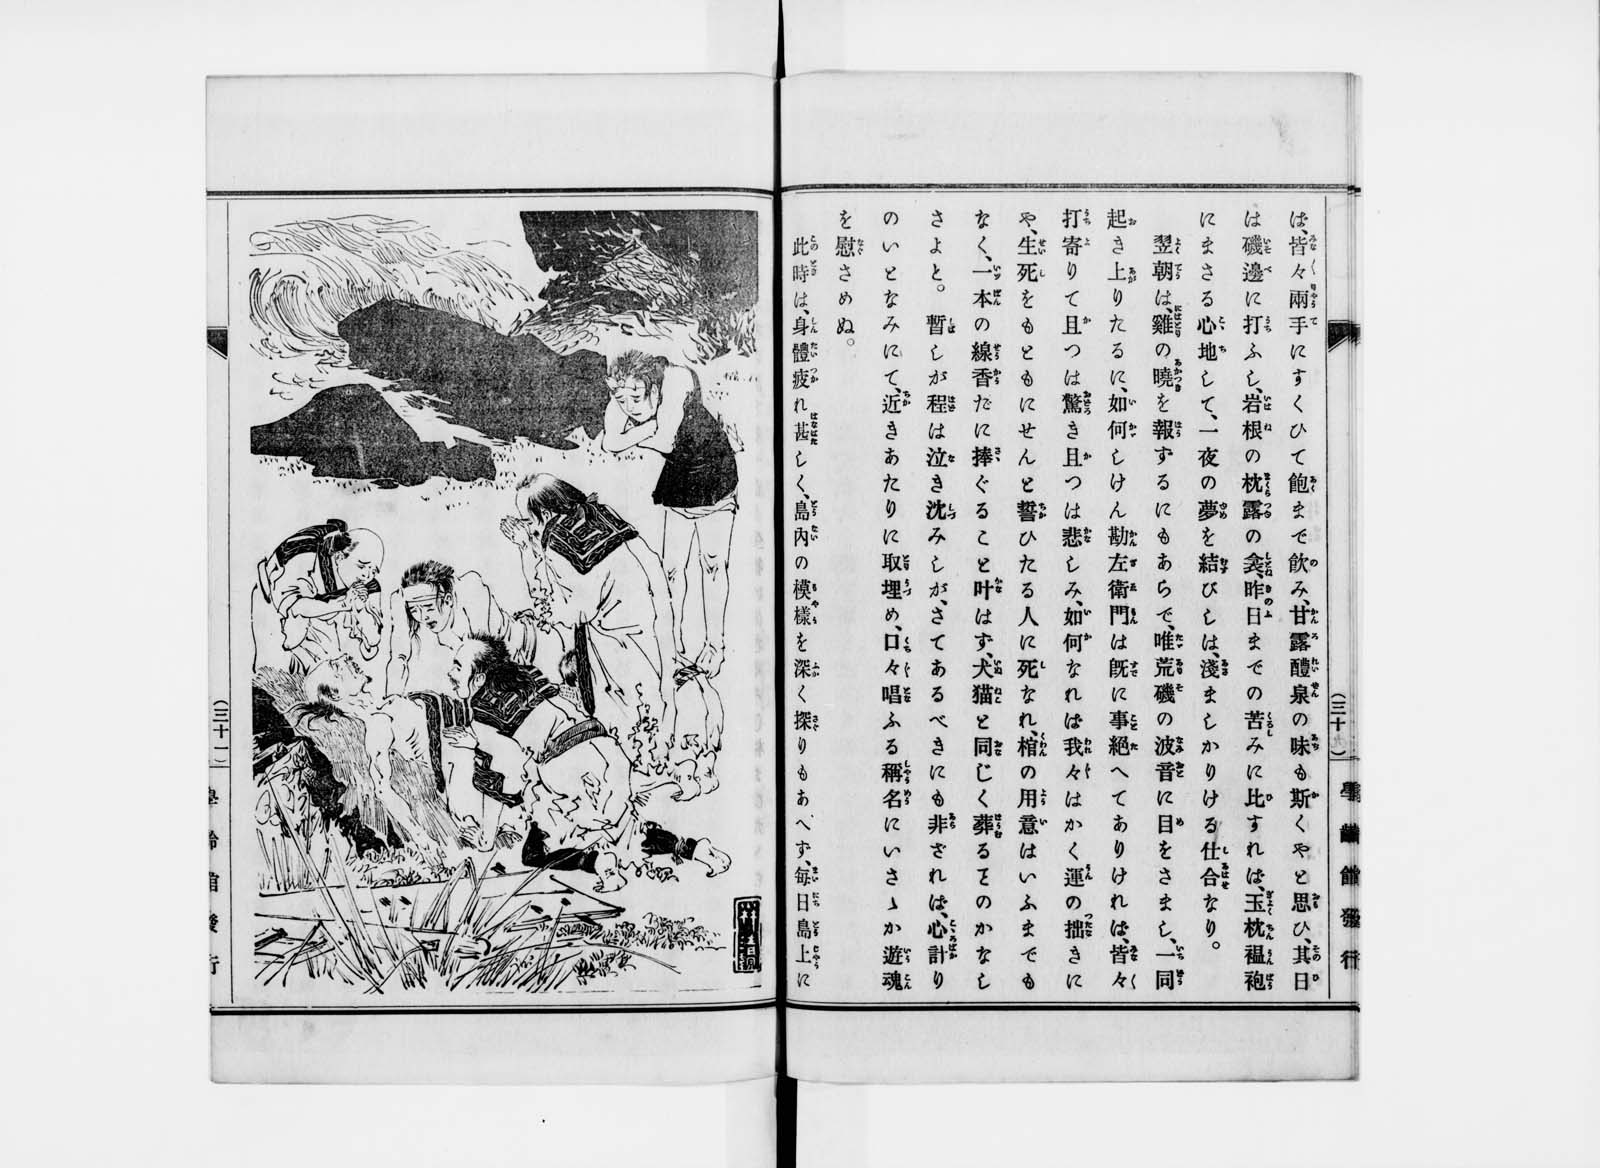 ば、皆々兩手にすくひて飽まで飮み、甘露醴泉の味も斯くやと思ひ、其日
は磯邊に打ふし、岩根の枕露の衾、昨日までの苦みに比すれば、玉枕褞袍
にまさる心地して、一夜の夢を結びしは、淺ましかりける仕合なり。
翌朝は、雞の曉を報ずるにもあらで、唯荒磯の波音に目をさまし、一同
起き上りたるに、如何しけん勘左衛門は既に事絶へてありければ、皆々
打寄りて且つは驚き且つは悲しみ、如何なれば我々はかく運の拙きに
や、生死をもともにせんと誓ひたる人に死なれ、棺の用意はいふまでも
なく、一本の線香だに捧ぐること叶はず、犬猫と同じく葬るとのかなし
さよと。暫しが程は泣き沈みしが、さてあるべきにも非ざれば、心計り
のいとなみにて、近きあたりに取埋め、口々唱ふる稱名にいさゝか遊魂
を慰さめぬ。
此時は、身體疲れ甚しく、島内の模樣を深く探りもあへず、毎日島上に
(三十)
學齡館發行
(三十一)
學齡館發行